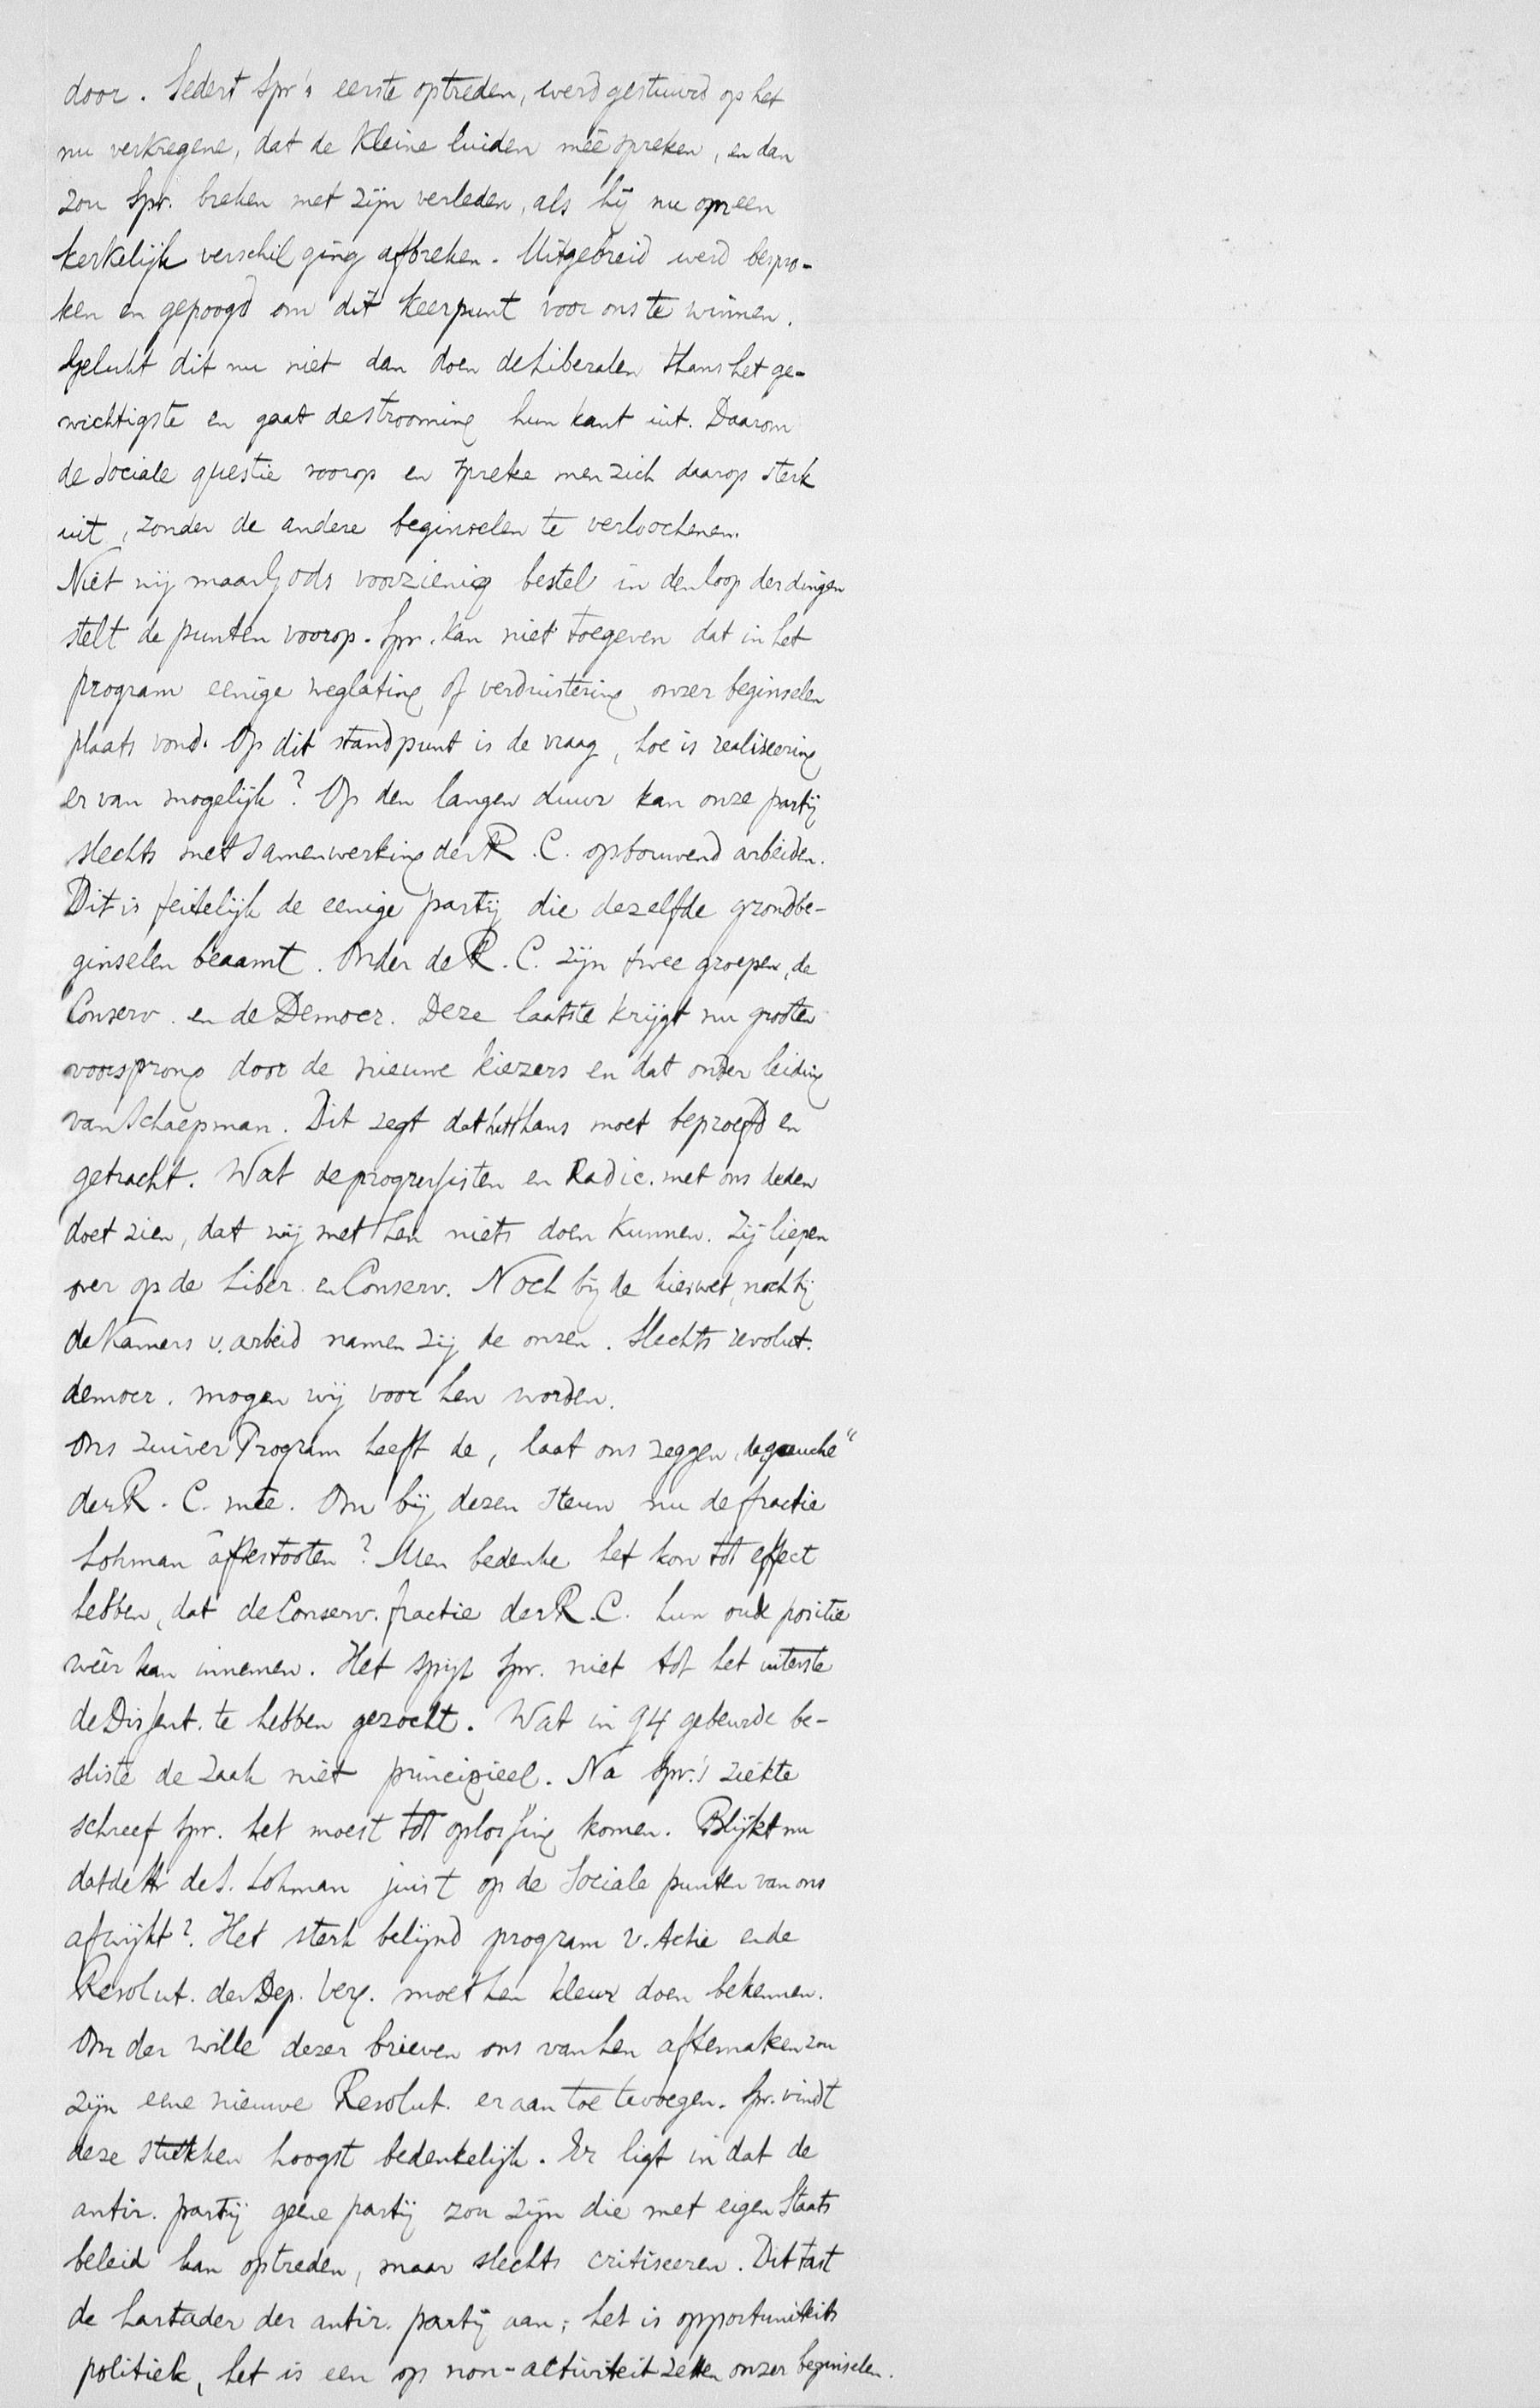 door. Sedert Spr's eerste optreden, werd gestuurd op het
nu verkregene, dat de Kleine luiden meêspreken, en dan
zou Spr. breken met zijn verleden, als hij nu op een
kerkelijk verschil ging afbreken. Uitgebreid werd bespro-
ken en gepoogd om dit keerpunt voor ons te winnen.
Gelukt dit nu niet dan doen de Liberalen thans het ge-
wichtigste en gaat de strooming hun kant uit. Daarom
de Sociale questie voorop en spreke men zich daarop sterk
uit, zonder de andere beginselen te verloochenen.
Niet wij maar Gods voorzienig bestel in den loop der dingen
stelt de punten voorop. Spr. kan niet toegeven dat in het
program eenige weglating of verduistering onzer beginselen
plaats vond. Op dit standpunt is de vraag, hoe is realiseering
er van mogelijk? Op den langen duur kan onze partij
slechts met samenwerking der R. C. opbouwend arbeiden.
Dit is feitelijk de eenige partij die dezelfde grondbe-
ginselen beaamt. Onder de R. C. zijn twee groepen, de
Conserv. en de Democr. Deze laatste krijgt nu grooten
voorsprong door de nieuwe kiezers en dat onder leiding
van Schaepman. Dit zegt dat het thans moet beproefd en
getracht. Wat de progressisten en Radic. met ons deden
doet zien, dat wij met hen niets doen kunnen. Zij liepen
over op de Liber. en Conserv. Noch bij de kieswet, noch bij
de Kamers v. arbeid namen zij de onzen. Slechts revolut.
democr. mogen wij voor hen worden.
Ons zuiver Program heeft de, laat ons zeggen, „de gauche"
der R. C. mee. Om bij dezen steun nu de fractie
Lohman af te stooten? Men bedenke het kon tot effect
hebben, dat de Conserv. fractie der R. C. hun oude positie
wêer kan innemen. Het spijt Spr. niet tot het uiterste
de Dissent. te hebben gezocht. Wat in 94 gebeurde be-
sliste de zaak niet principieel. Na Spr.'s ziekte
schreef Spr. het moest tot oplossing komen. Blijkt nu
dat de Hr de S. Lohman juist op de Sociale punten van ons
afwijkt? Het sterk belijnd program v. Actie en de
Resolut. der Dep. Verg. moet hen kleur doen bekennen.
Om der wille dezer brieven ons van hen af te maken zou
zijn eene nieuwe Resolut. er aan toe te voegen. Spr. vindt
deze stukken hoogst bedenkelijk. Er ligt in dat de
antir. partij geene partij zou zijn die met eigen Staats
beleid kan optreden, maar slechts critiseeren. Dit tast
de hartader der antir. partij aan; het is opportuniteits
politiek, het is een op non-activiteit zetten onzer beginselen.